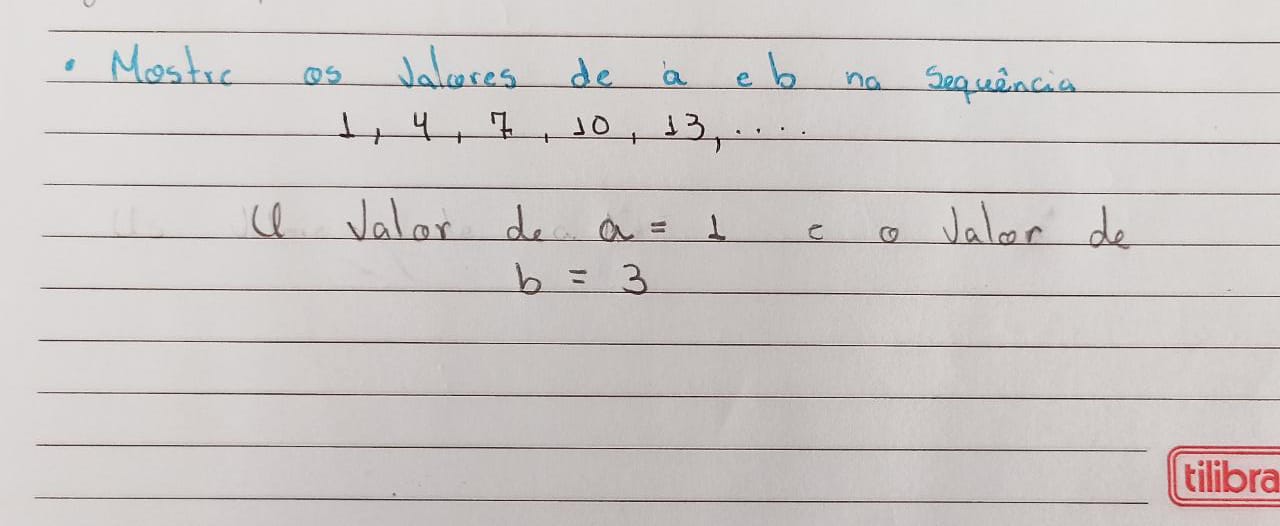 • Mostre os valores de a e b na sequência
1, 4, 7, 10, 13, ....
O valor de a = 1 e o valor de
b = 3
tilibra